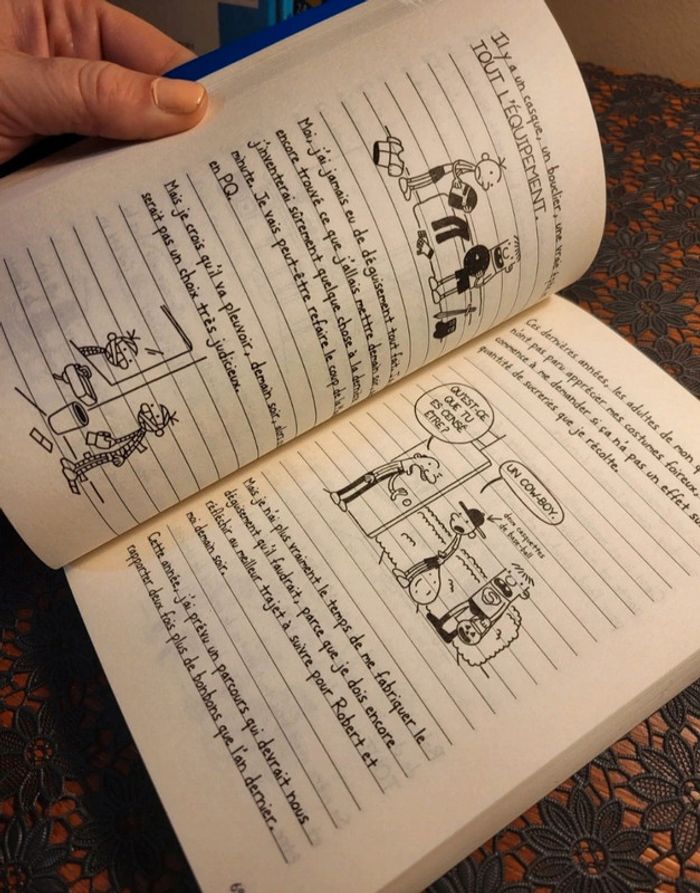 Il y a un casque, un bouclier, une vraie
TOUT L'ÉQUIPEMENT.
Moi, j'ai jamais eu de déguisement tout fait.
encore trouvé ce que j'allais mettre demain
j'inventerai sûrement quelque chose à la dernière
minute. Je vais peut-être refaire le coup de la
en PQ.
Mais je crois qu'il va pleuvoir, demain soir,
serait pas un choix très judicieux.
Ces dernières années, les adultes de mon
n'ont pas paru apprécier mes costumes foireux,
commence à me demander si ça n'a pas un effet
quantité de sucreries que je récolte.
QU'EST-CE
QUE TU
ES CENSÉ
ÊTRE?
UN COW-BOY.
deux casquettes
de base-ball
Mais je n'ai plus vraiment le temps de me fabriquer le
déguisement qu'il faudrait, parce que je dois encore
réfléchir au meilleur trajet à suivre pour Robert et
moi demain soir.
Cette année, j'ai prévu un parcours qui devrait nous
rapporter deux fois plus de bonbons que l'an dernier.